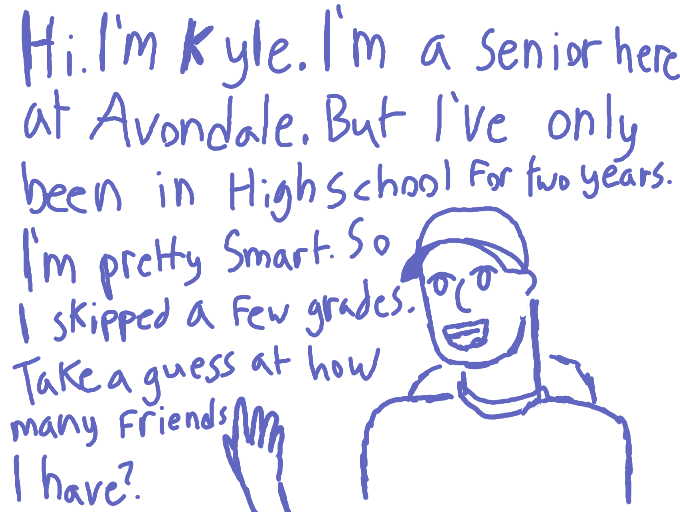 Hi. I'm Kyle. I'm a senior here
at Avondale. But I've only
been in Highschool for two years.
I'm pretty smart. So
I skipped a few grades.
Take a guess at how
many friends
I have?